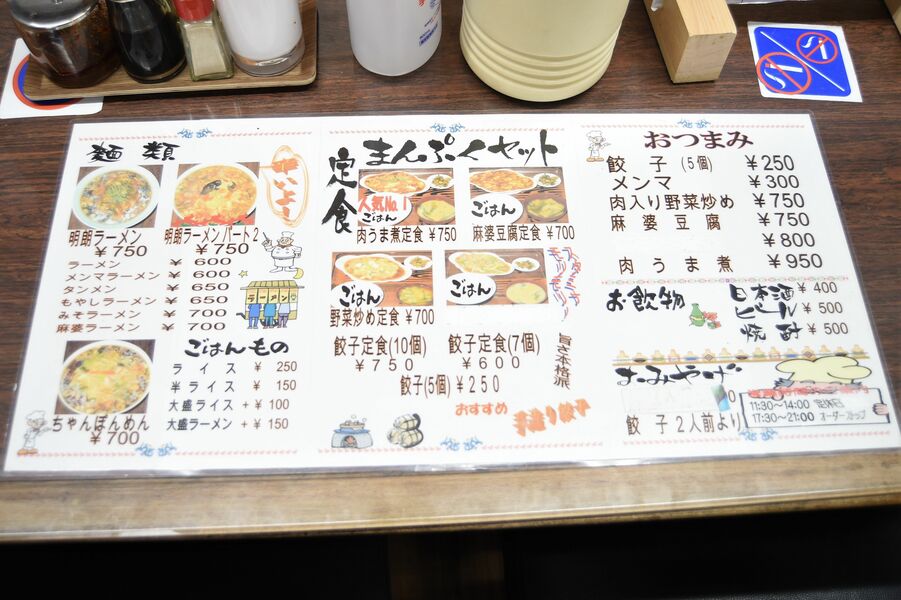 麺類
旨いよー
明朗ラーメン
￥750
明朗ラーメンパート2
￥750
ラーメン ￥ 600
メンマラーメン ￥ 600
タンメン ￥ 650
もやしラーメン ￥ 650
みそラーメン ￥ 700
麻婆ラーメン ￥ 700
ラーメン
ちゃんぽんめん
￥700
ごはんもの
ライス ￥ 250
半ライス ￥ 150
大盛ライス +￥ 100
大盛ラーメン +￥ 150
定食
まんぷくセット
人気No.1
ごはん
肉うま煮定食 ￥750
ごはん
麻婆豆腐定食 ￥700
ごはん
野菜炒め定食 ￥700
ごはん
スタミナ
モリモリ
餃子定食(10個)
￥750
餃子定食(7個)
￥600
餃子(5個) ￥250
旨さ本格派
おすすめ
手造り餃子
おつまみ
餃子(5個) ￥250
メンマ ￥300
肉入り野菜炒め ￥750
麻婆豆腐 ￥750
￥800
肉うま煮 ￥950
お飲物
日本酒 ￥ 400
ビール ￥ 500
焼酎 ￥ 500
おみやげ
餃子2人前より
11:30~14:00
17:30~21:00 オーダーストップ